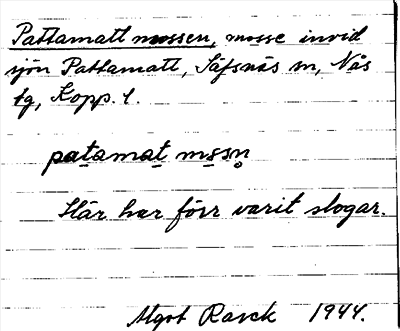 Pattamattmossen, mosse invid
sjön Pattamatt, Säfsnäs sn, Nås
tg, Kopp. l.
patamat mssn
Här har förr varit slogar.
Algot Rasck 1944.